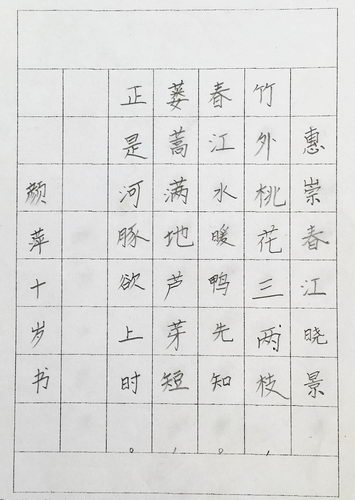 惠崇春江晓景
竹外桃花三两枝，
春江水暖鸭先知。
蒌蒿满地芦芽短，
正是河豚欲上时。
颜萍十岁书